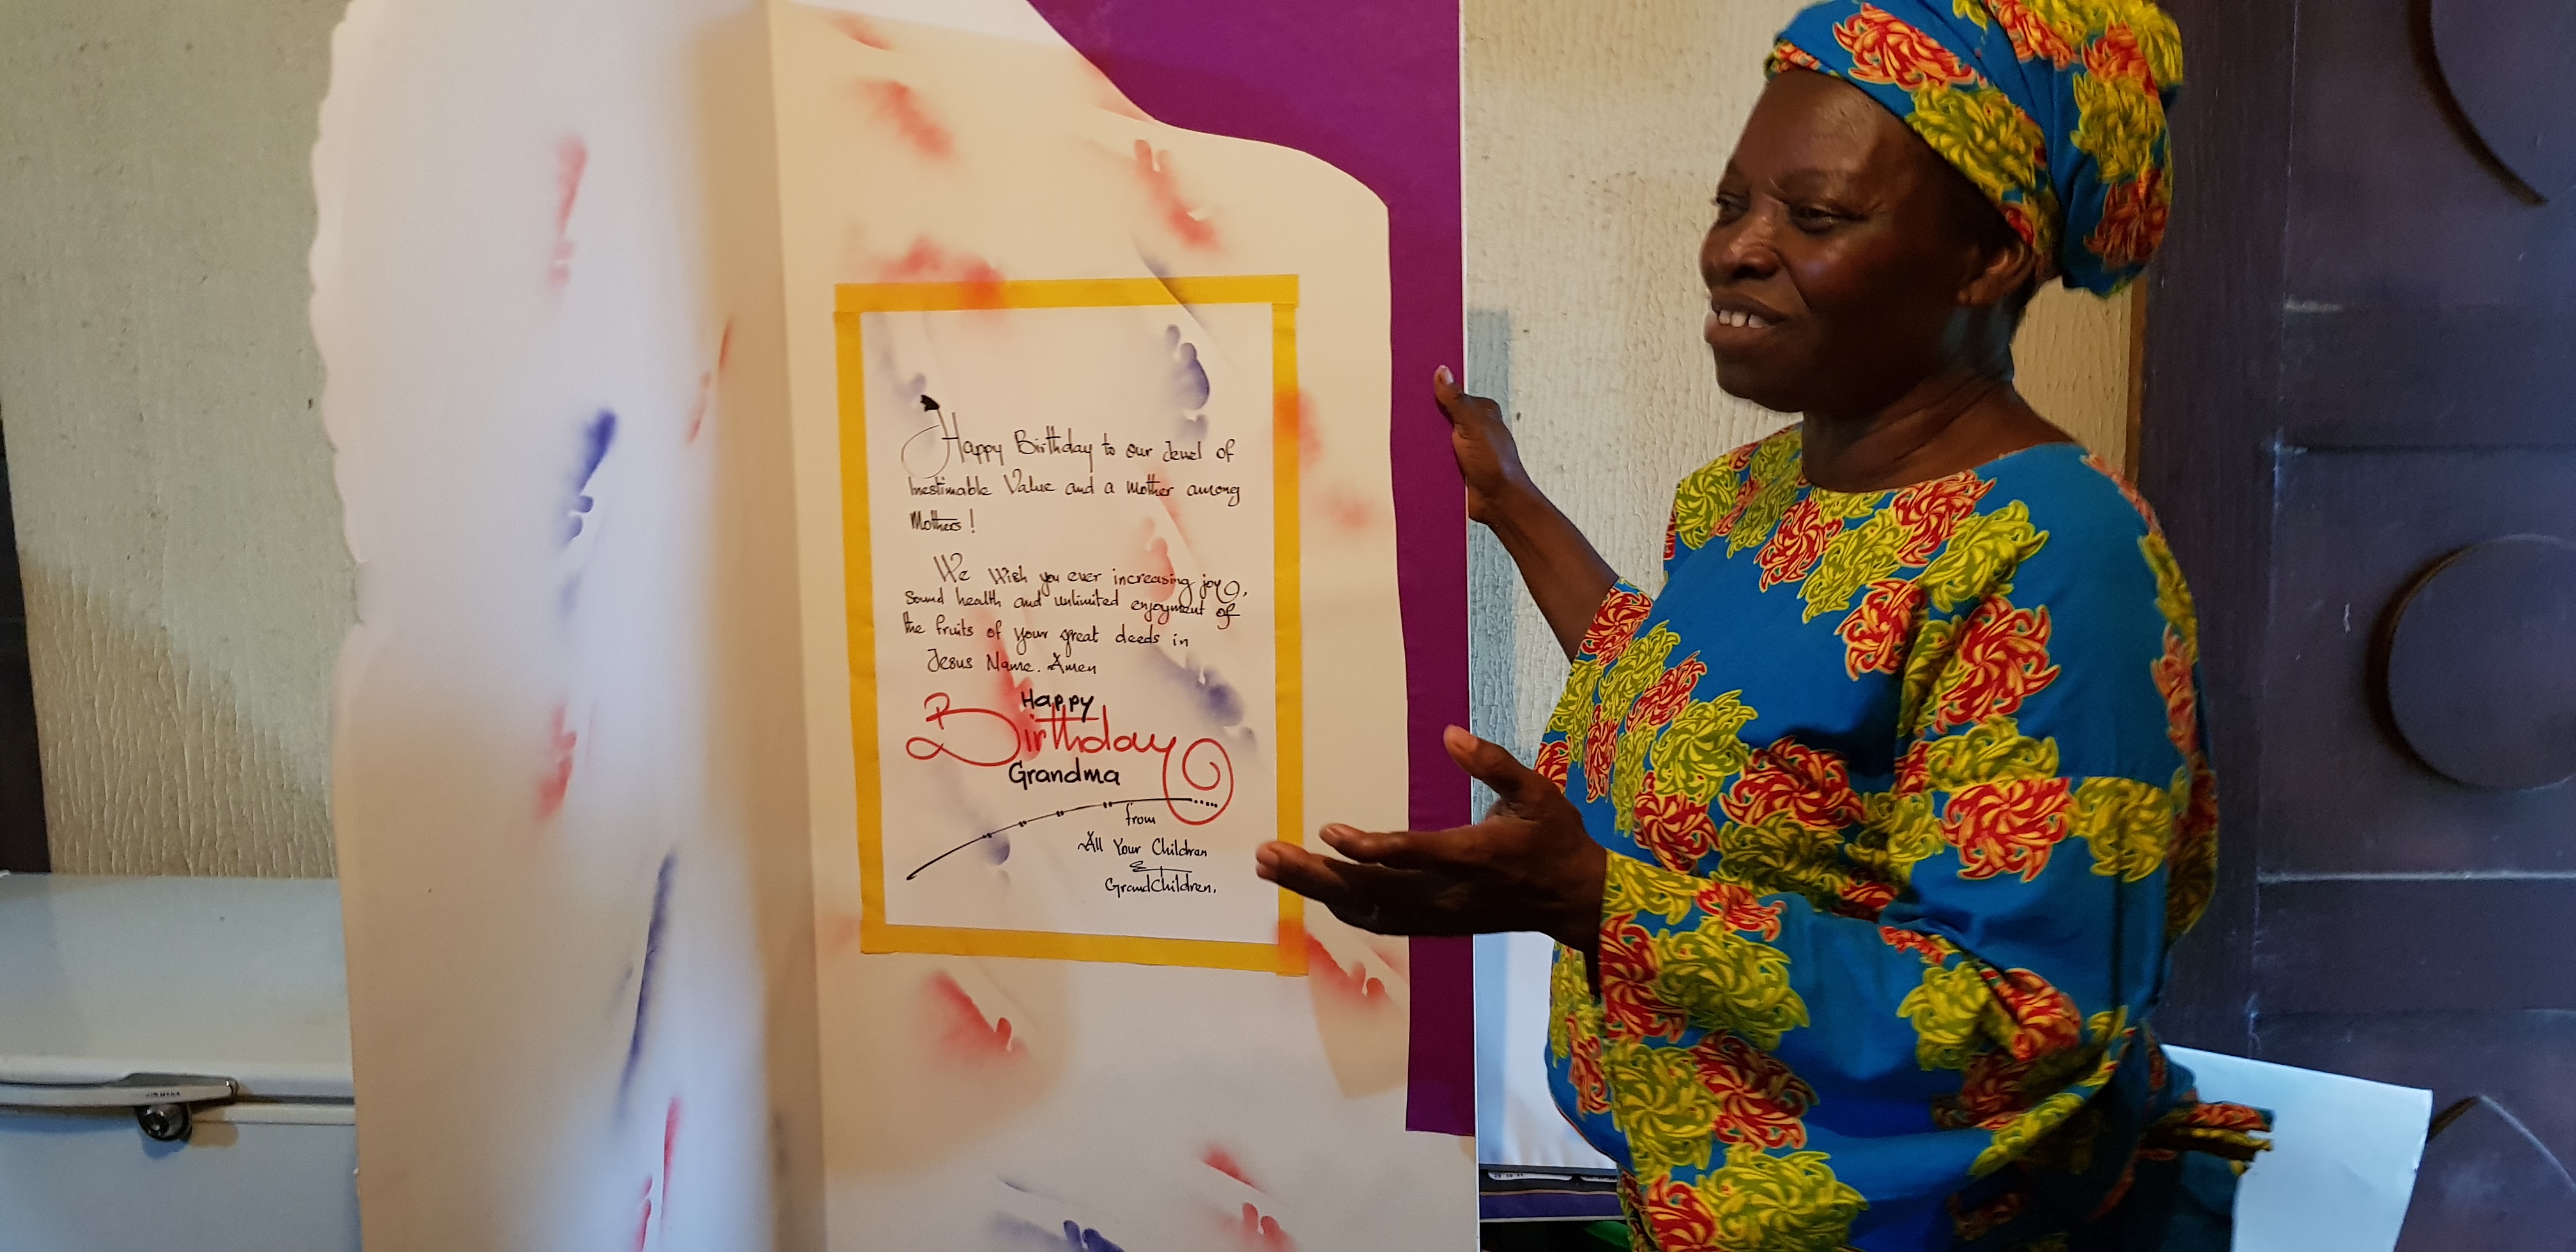 Happy Birthday to our Jewel of
Inestimable Value and a Mother among
Mothers!
We Wish you ever increasing joy,
Sound health and unlimited enjoyment of
the fruits of your great deeds in
Jesus Name. Amen
Happy
Birthday
Grandma
from
All Your Children
&
GrandChildren.